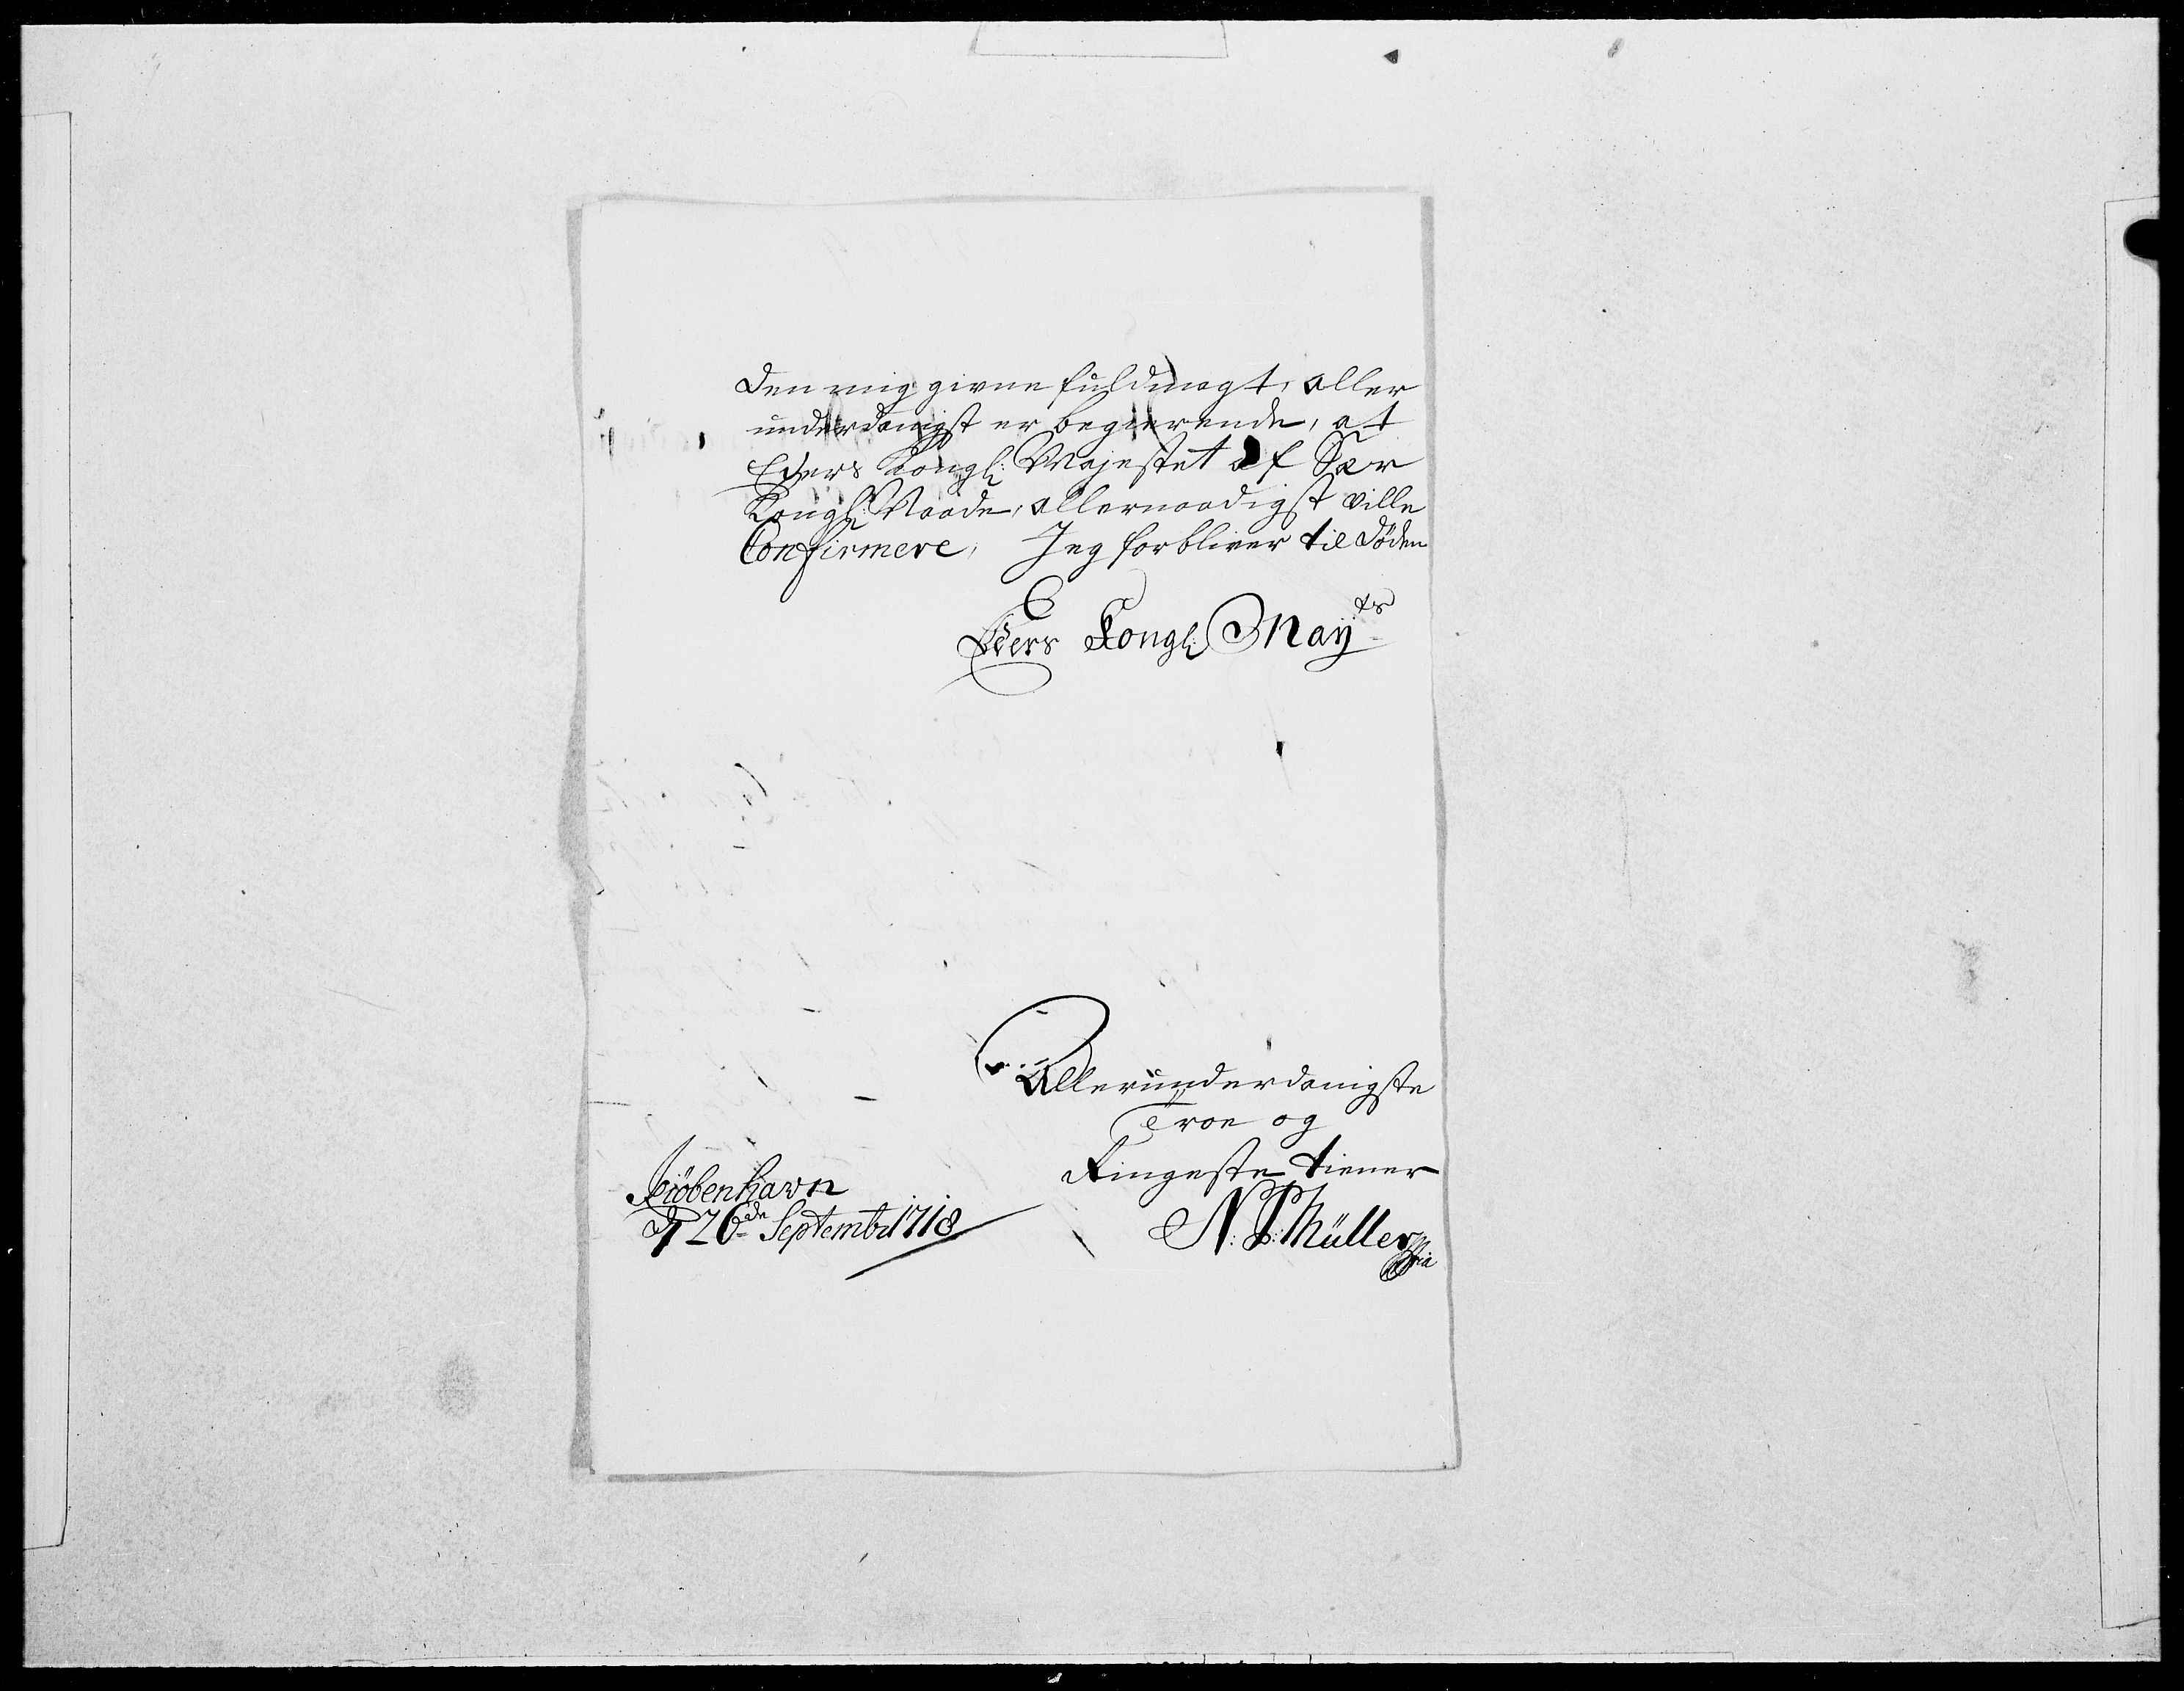 den mig givne fuldmagt, aller
underdanigst er begierende, at
Eders Kongl: Majestet af Sær
Kongl: Naade, allernaadigst ville
Confirmere, Jeg forbliver til döden
Eders Kongl: May:ts
Allerunderdanigste
Troe og
Ringeste tiener
Kiöbenhavn
d 26de Septembr 1718
N: P: Müller